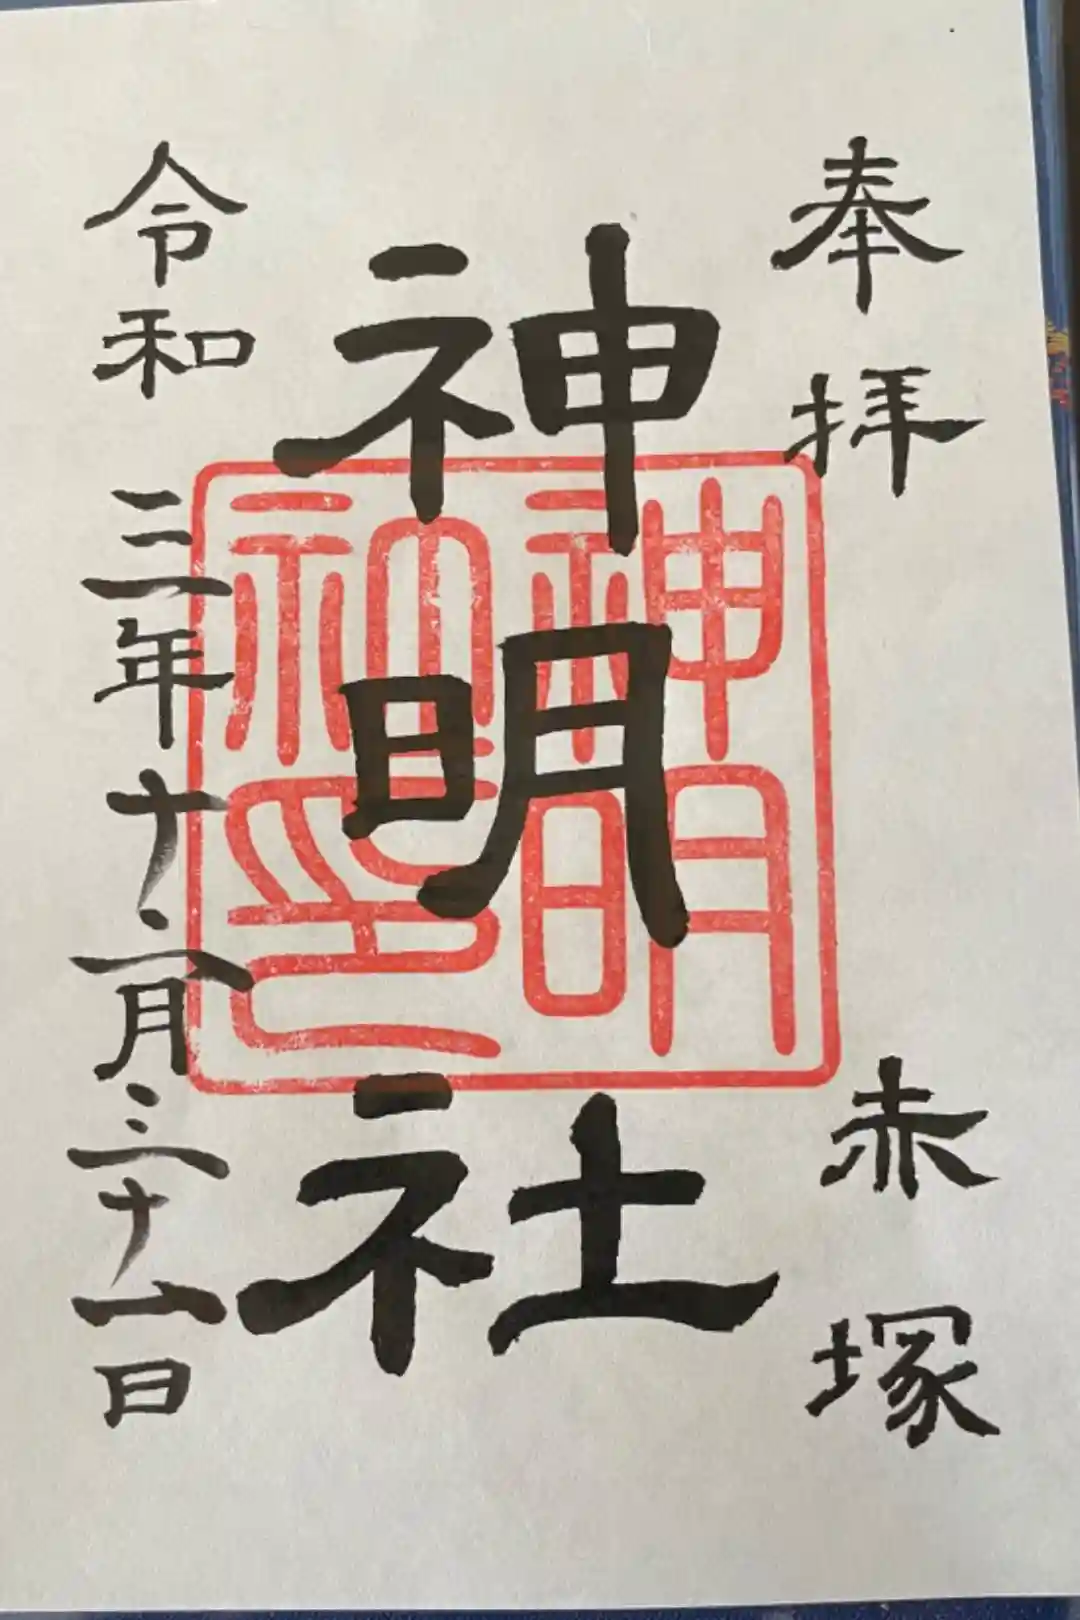 奉拝　赤塚
神明社
神明社印
令和三年十二月三十一日